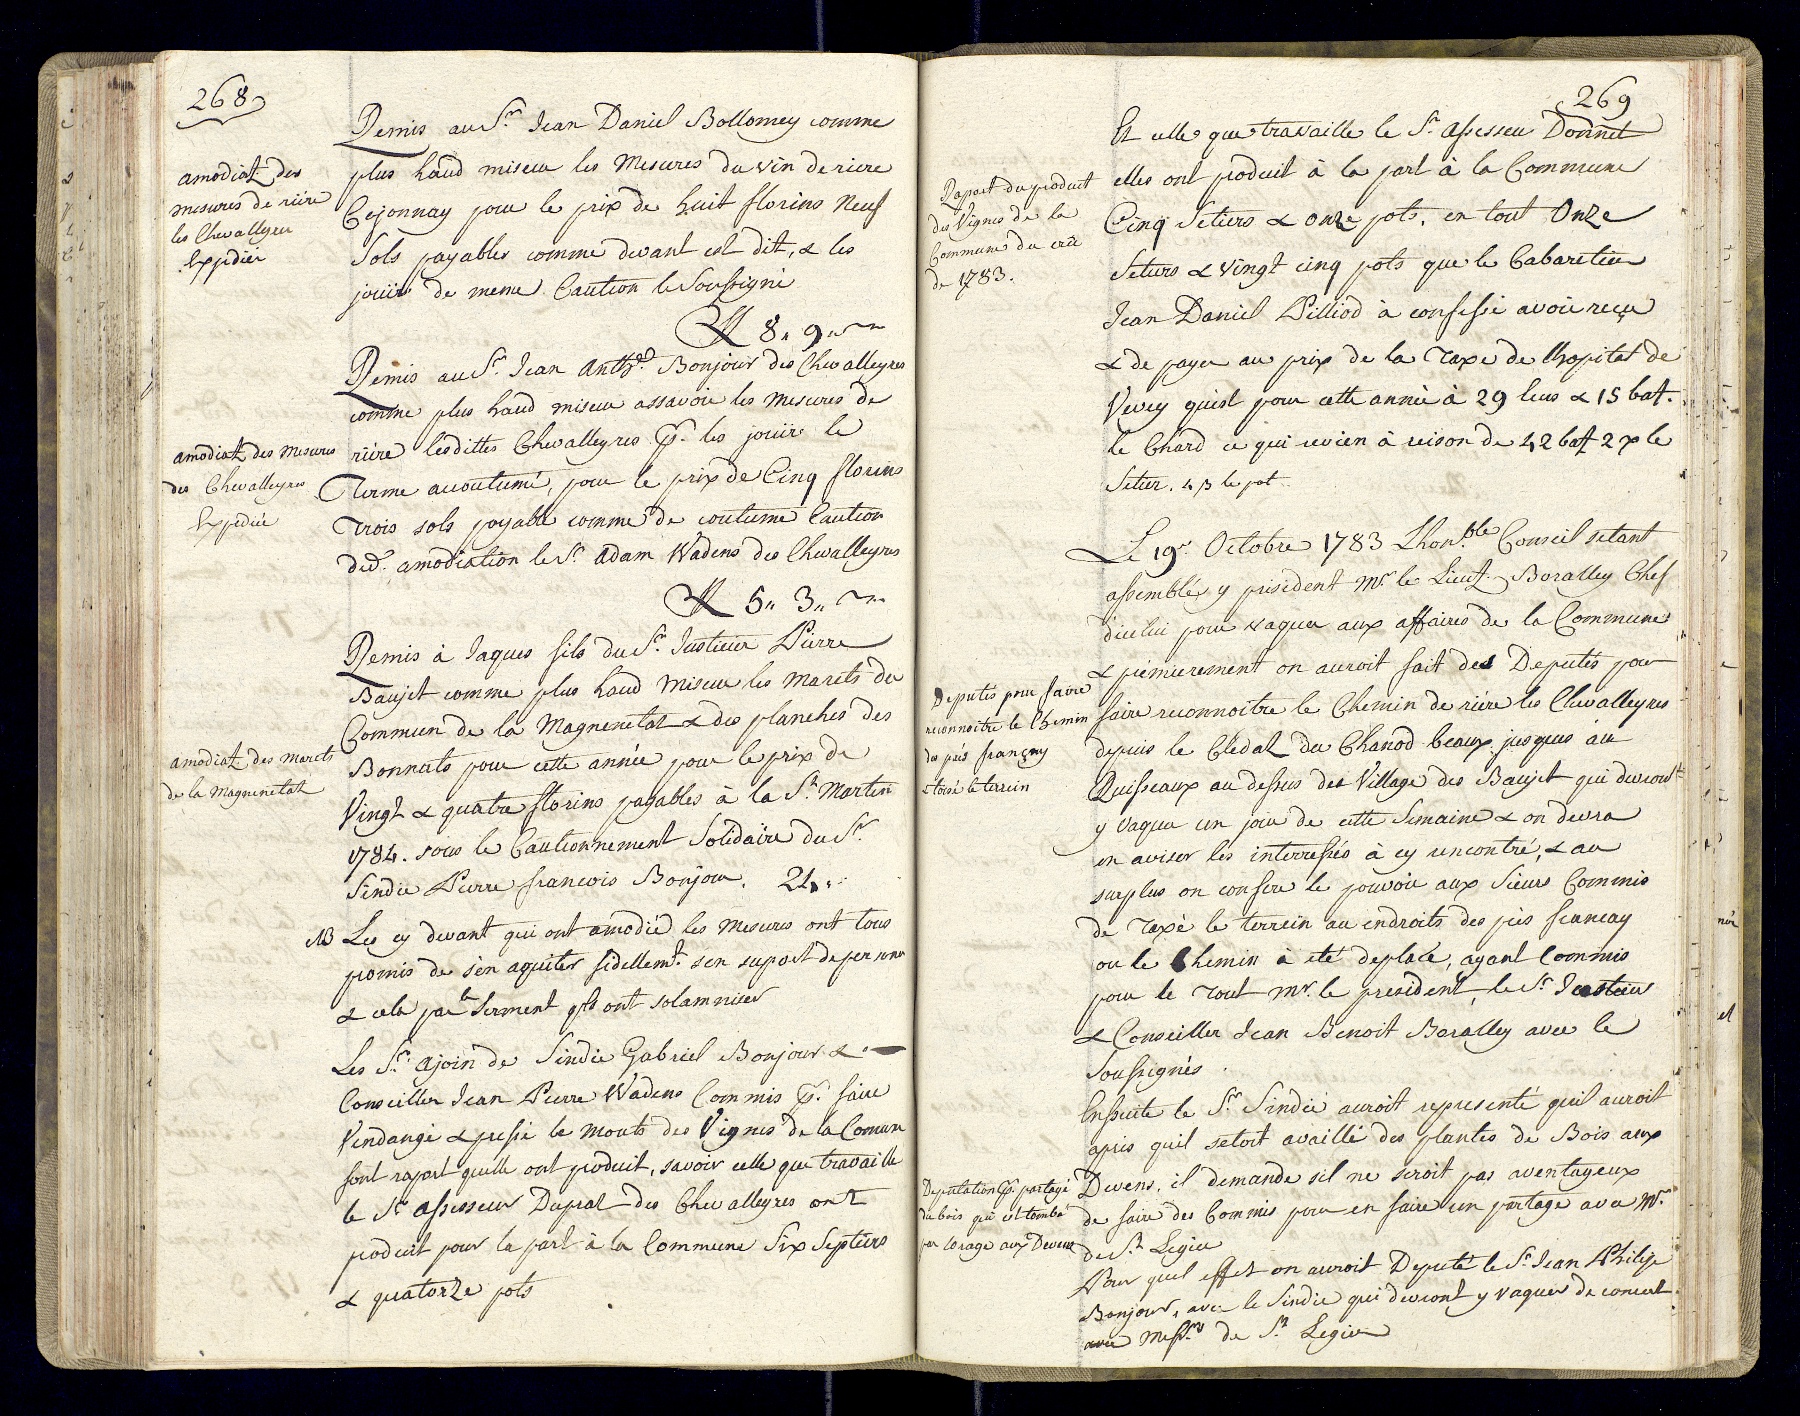 268
Remis au Sr. Jean Daniel Bollomey comme
plus haud miseur les Mesures du vin de riere
Cojonnay pour le prix de huit florins Neuf
Sols payables comme devant est dit, & les
jouïr de meme Caution le Soussigné
ff 8 „ 9 „
amodiat. des
mesures de riére
les Chevalleyres
Expédier
Remis au Sr. Jean Anthd. Bonjour des Chevalleyres
comme plus haud miseur assavoir les Mesures de
riére lesdittes Chevalleyres pr. les jouïr le
Terme acoutumé, pour le prix de Cinq florins
Trois sols payable comme de coutume Caution
ded. amodiation le Sr. Adam Wadens des Chevalleyres
ff 5 „ 3 „
amodiat. des Mesures
des Chevalleyres
Expediée
Remis à Jaques fils du Sr. Justicier Pierre
Baujet comme plus haud Miseur les marets du
Commun de la Magnenetaz & des planches des
Bonnets pour cette année pour le prix de
Vingt & quatre florins payables à la St. Martin
1784. sous le Cautionnement Solidaire du Sr.
Sindic Pierre francois Bonjour. 24 „
amodiat. des Marets
de la Magnenetaz
NB Les cy devant qui ont amodié les Mesures ont tous
promis de s'en aquiter fidellemt. sen suport de personne
& cela par le Serment qls ont solamniser
Les Srs. ajoin de Sindic Gabriel Bonjour &
Conseiller Jean Pierre Wadens Commis pr. faire
Vendange & pressé le Mouts des Vignes de la Comun
font raport quelle ont produit, savoir celle que travaille
le Sr. assesseur Dupraz des Chevalleyres ont
produit pour la part à la Commune Six Septiers
& quatorze pots
269
Et celle que travaille le Sr. assesseur Donnet
elles ont produit à la part à la Commune
Cinq Setiers & onze pots, en tout Onze
Setiers & vingt cinq pots que le Cabaretier
Jean Daniel Pilliod à confessé avoir reçu
& de payer au prix de la Taxe de l'hopital de
Vevey quist pour cette année à 29 leus & 15 bat.
le Chard ce qui revien à reison de 42 bat 2 x le
Setier. 4 β le pot
Raport du produit
des Vignes de la
Commune du crû
de 1783.
Le 19e. Octobre 1783 Lhonble. Conseil setant
assemblés y président Mr. le Lieut. Boralley Chef
d'icelui pour vaquer aux affaires de la Commune
& premierement on auroit fait des Deputés pour
faire reconnoitre le Chemin de riére les Chevalleyres
depuis le Clédal du Chanod beaux jusques au
Ruisseaux au dessus des Village des Baujet qui devront
y vaquer un jour de cette Semaine & on devra
en aviser les interressés à cy rencontré, & au
surplus on confere le pouvoir aux Sieurs Commis
de Taxé le terrein au endroits des prés francay
ou le Chemin à eté deplacé, ayant Commis
pour le Tout Mr. le president, le Sr. Justicier
& Conseiller Jean Benoit Boralley avec le
Soussignés.
Deputés pour faire
reconnoitre le Chemin
des prés françey
& toisé le terrein
Ensuite le Sr. Sindic auroit representé quil auroit
apris quil setoit availlé des plantes de Bois aux
Devens, il demande sil ne seroit pas aventageux
de faire des Commis pour en faire un partage avec Mr.
de St. Legier
Pour quel effet on auroit Deputé le Sr. Jean Philipe
Bonjour, avec le Sindic qui devront y vaquer de concert
avec Messrs. de St. Legier
Deputation pr. partagé
du bois qui est tombé
par lorage aux Devens